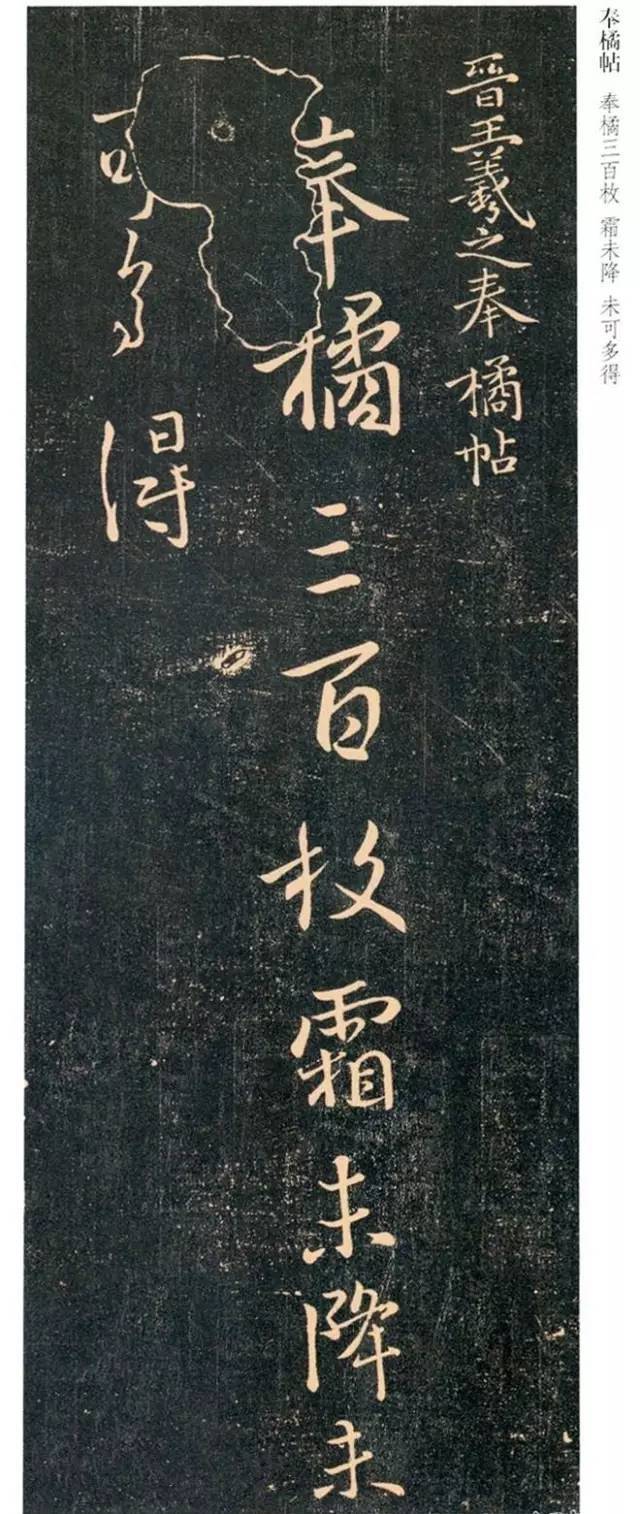 奉橘帖 奉橘三百枚 霜未降 未可多得
晋王羲之奉橘帖
奉橘三百枚霜未降未
可多得